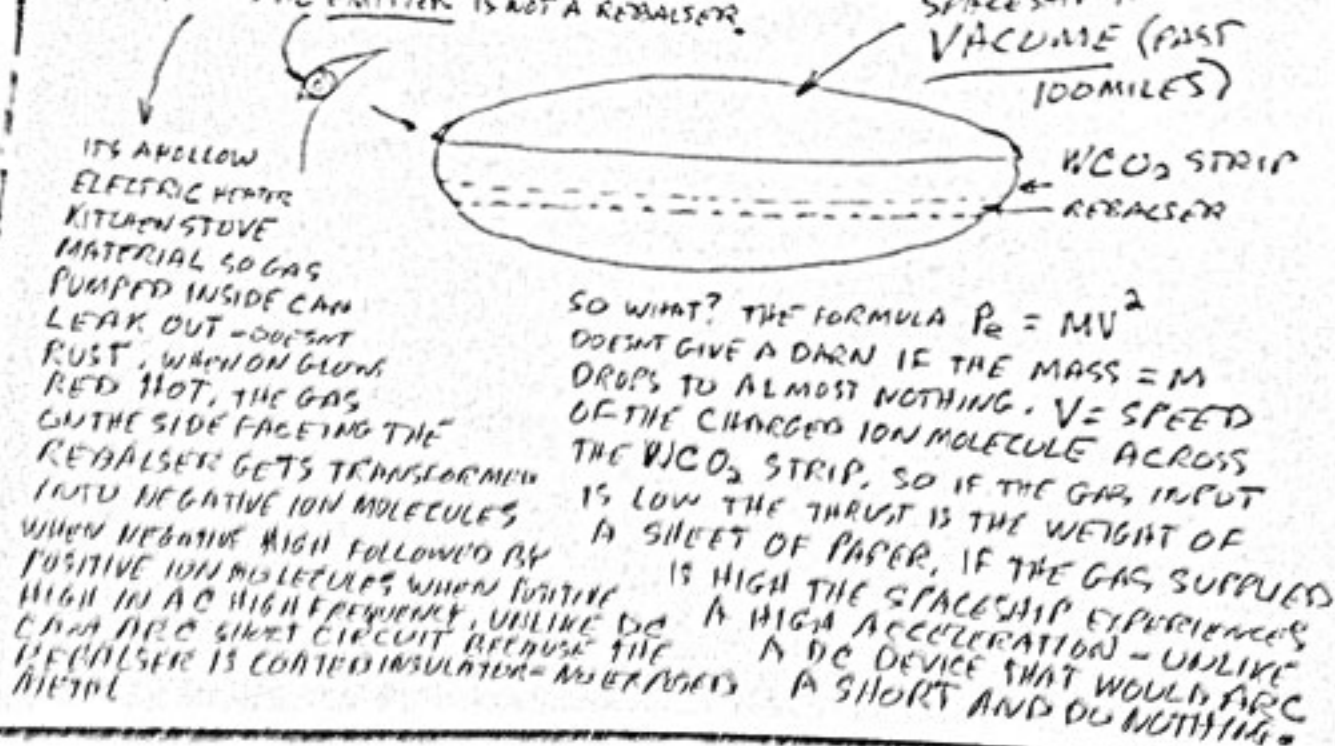 EMITTER IS NOT A REBALSER.
VACUME (PAST
100 MILES)
WCO₂ STRIP
REBALSER
ITS A HOLLOW
ELECTRIC HEATER
KITCHEN STOVE
MATERIAL SO GAS
PUMPED INSIDE CAN
LEAK OUT - DOESNT
RUST, WHEN ON GLOWS
RED HOT, THE GAS
ON THE SIDE FACEING THE
REBALSER GETS TRANSFORMED
INTO NEGATIVE ION MOLECULES
WHEN NEGATIVE HIGH FOLLOWED BY
POSITIVE ION MOLECULES WHEN POSITIVE
HIGH IN AC HIGH FREQUENCY, UNLIKE DC
CAN ARC SHORT CIRCUIT BECAUSE THE
REBALSER IS COATED INSULATOR = NO EXPOSED
METAL
SO WHAT? THE FORMULA Pe = MV²
DOESNT GIVE A DARN IF THE MASS = M
DROPS TO ALMOST NOTHING. V = SPEED
OF THE CHARGED ION MOLECULE ACROSS
THE WCO₂ STRIP, SO IF THE GAS INPUT
IS LOW THE THRUST IS THE WEIGHT OF
A SHEET OF PAPER, IF THE GAS SUPPLIED
IS HIGH THE SPACESHIP EXPERIENCES
A HIGH ACCELERATION - UNLIKE
A DC DEVICE THAT WOULD ARC
A SHORT AND DO NOTHING.